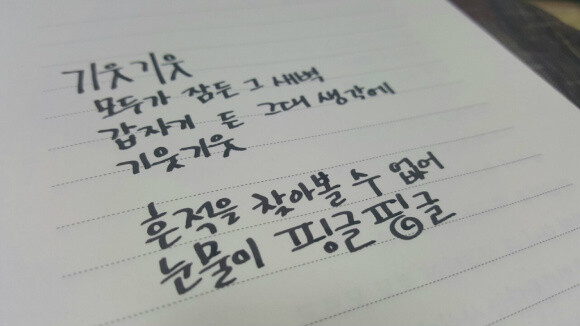 기웃기웃
모두가 잠든 그 새벽
갑자기 든 그대 생각에
기웃기웃
흔적을 찾아볼 수 없어
눈물이 핑글핑글